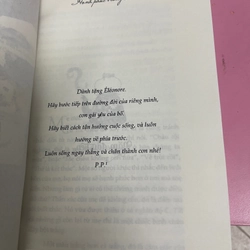 Dành tặng Éléonore.
Hãy bước tiếp trên đường đời của riêng mình,
con gái yêu của bố.
Hãy biết cách tận hưởng cuộc sống, và luôn
hướng về phía trước.
Luôn sống ngay thẳng và chân thành con nhé!
P.P.